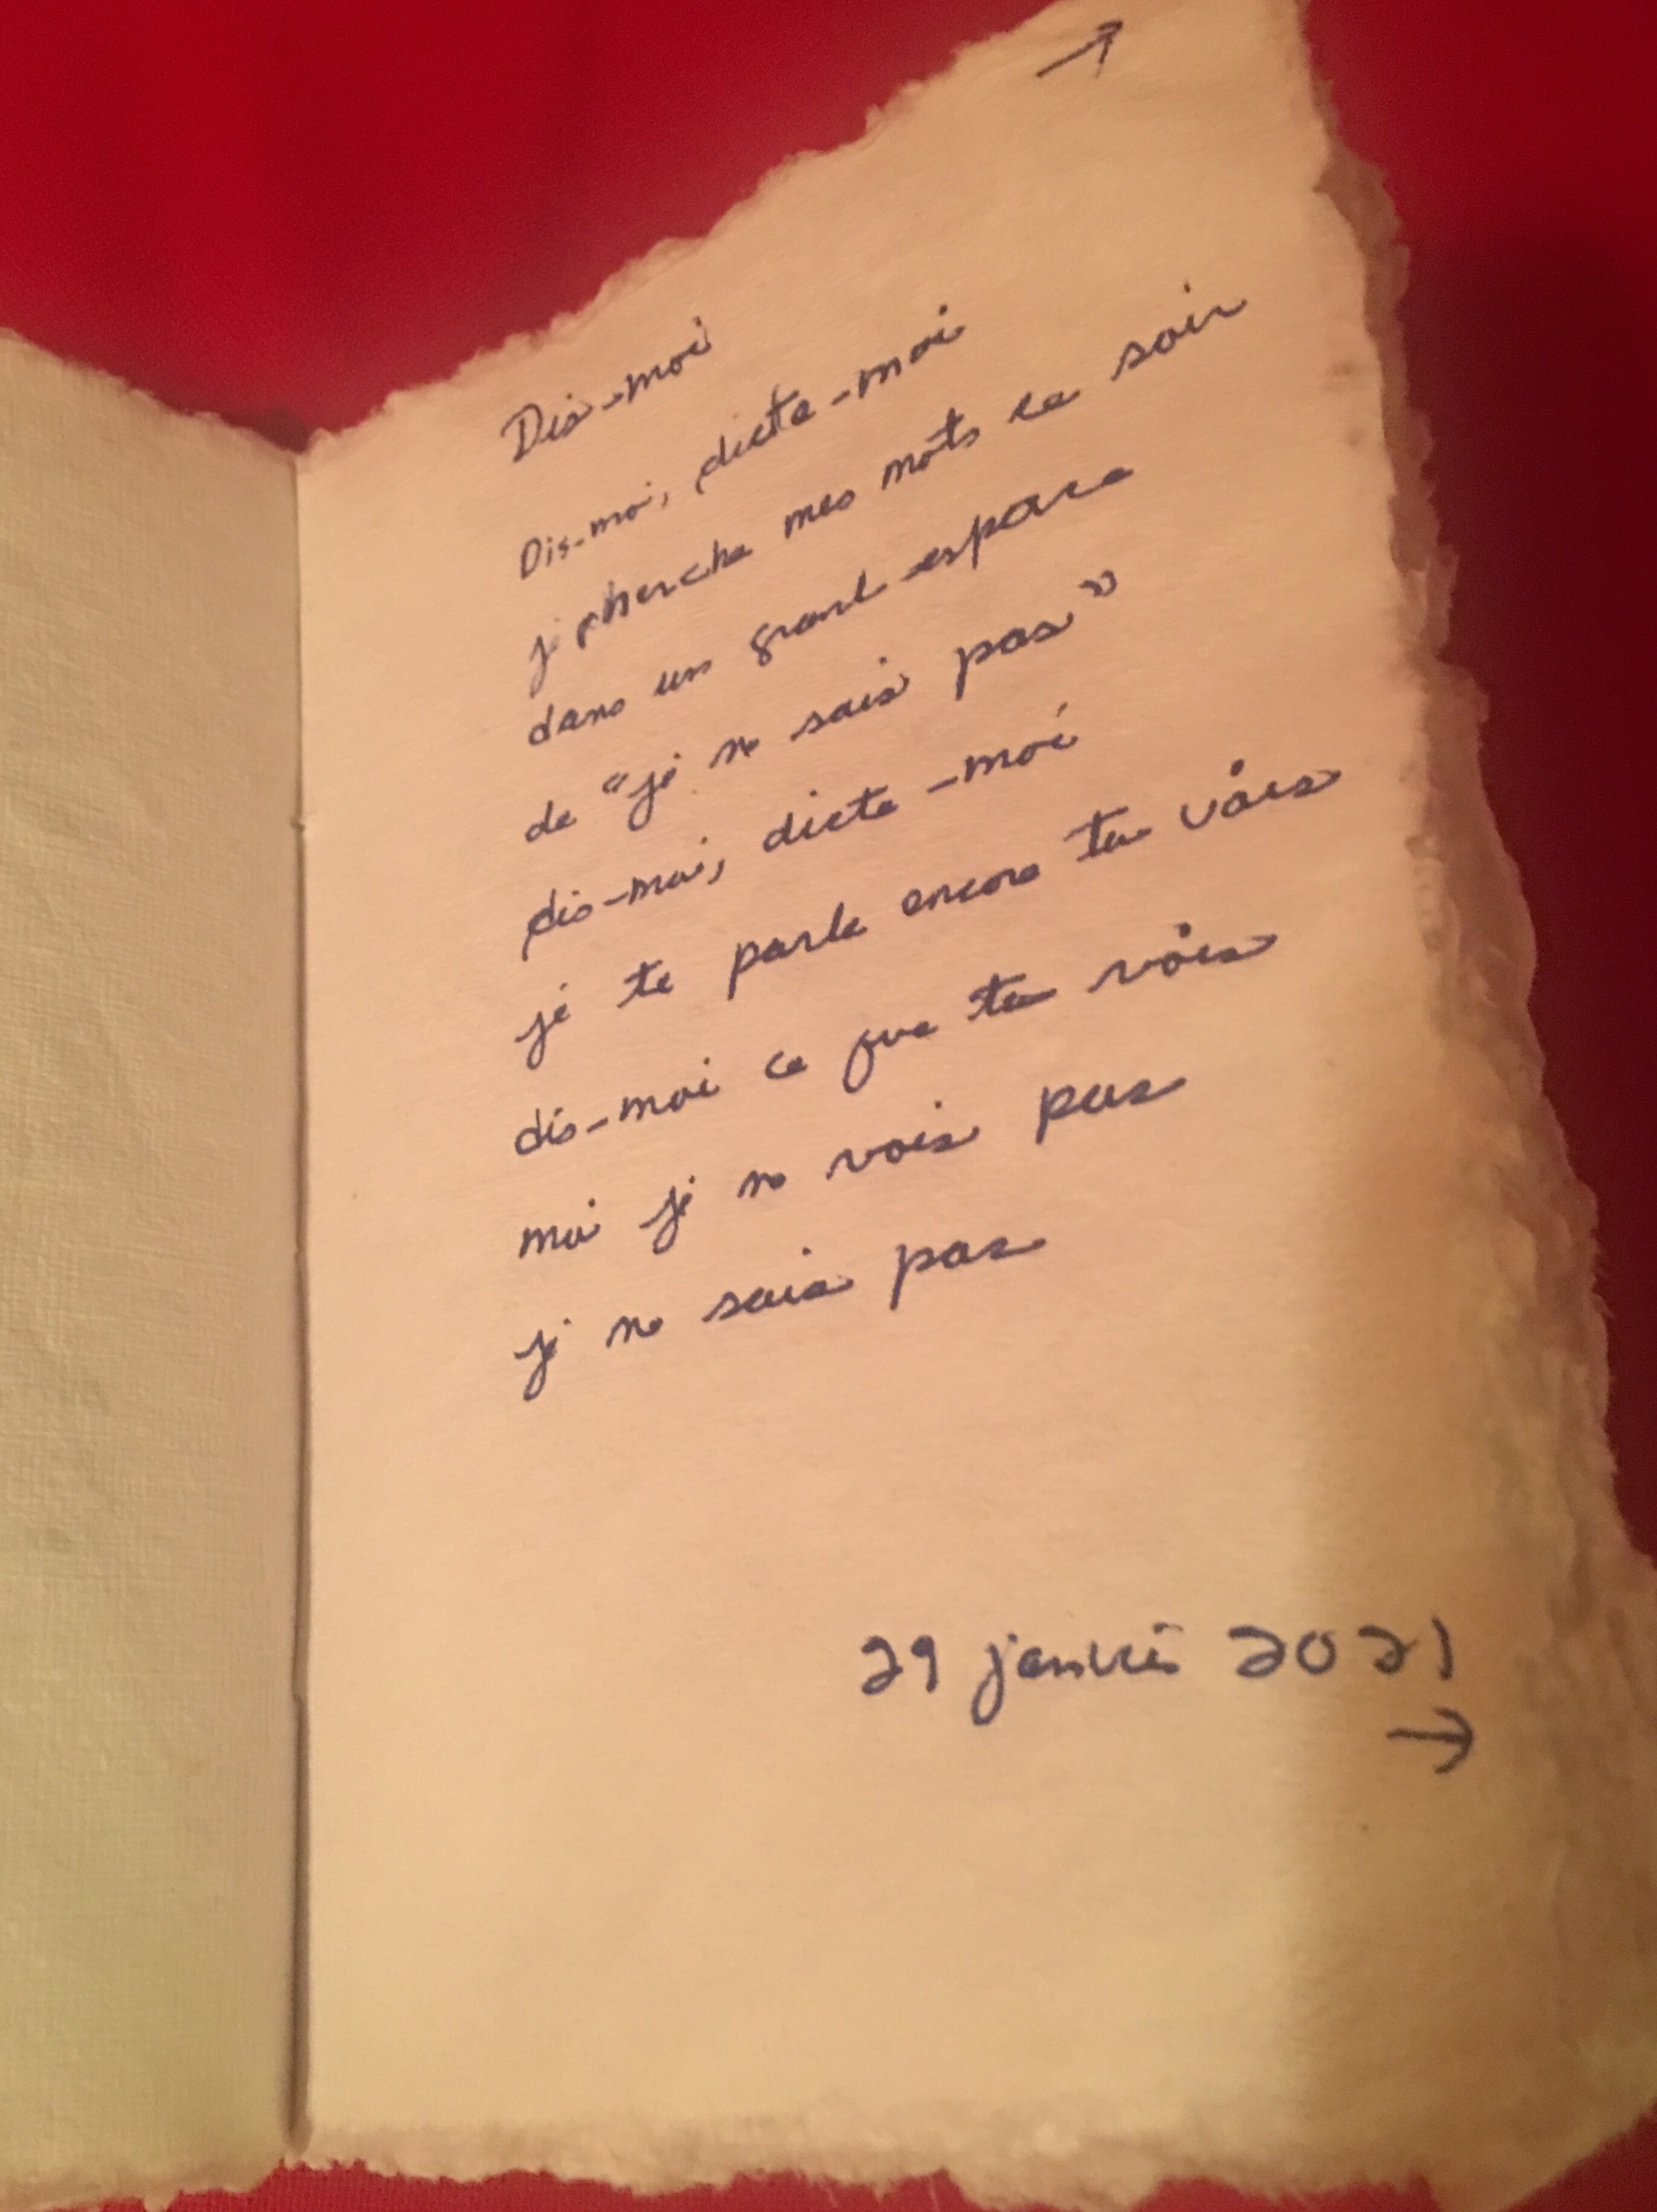 →
Dis-moi
Dis-moi, dicte-moi
je cherche mes mots ce soir
dans un grand espace
de "je ne sais pas"
dis-moi, dicte-moi
je te parle encore tu vois
dis-moi ce que tu vois
moi je ne vois pas
je ne sais pas
29 janvier 2021
→